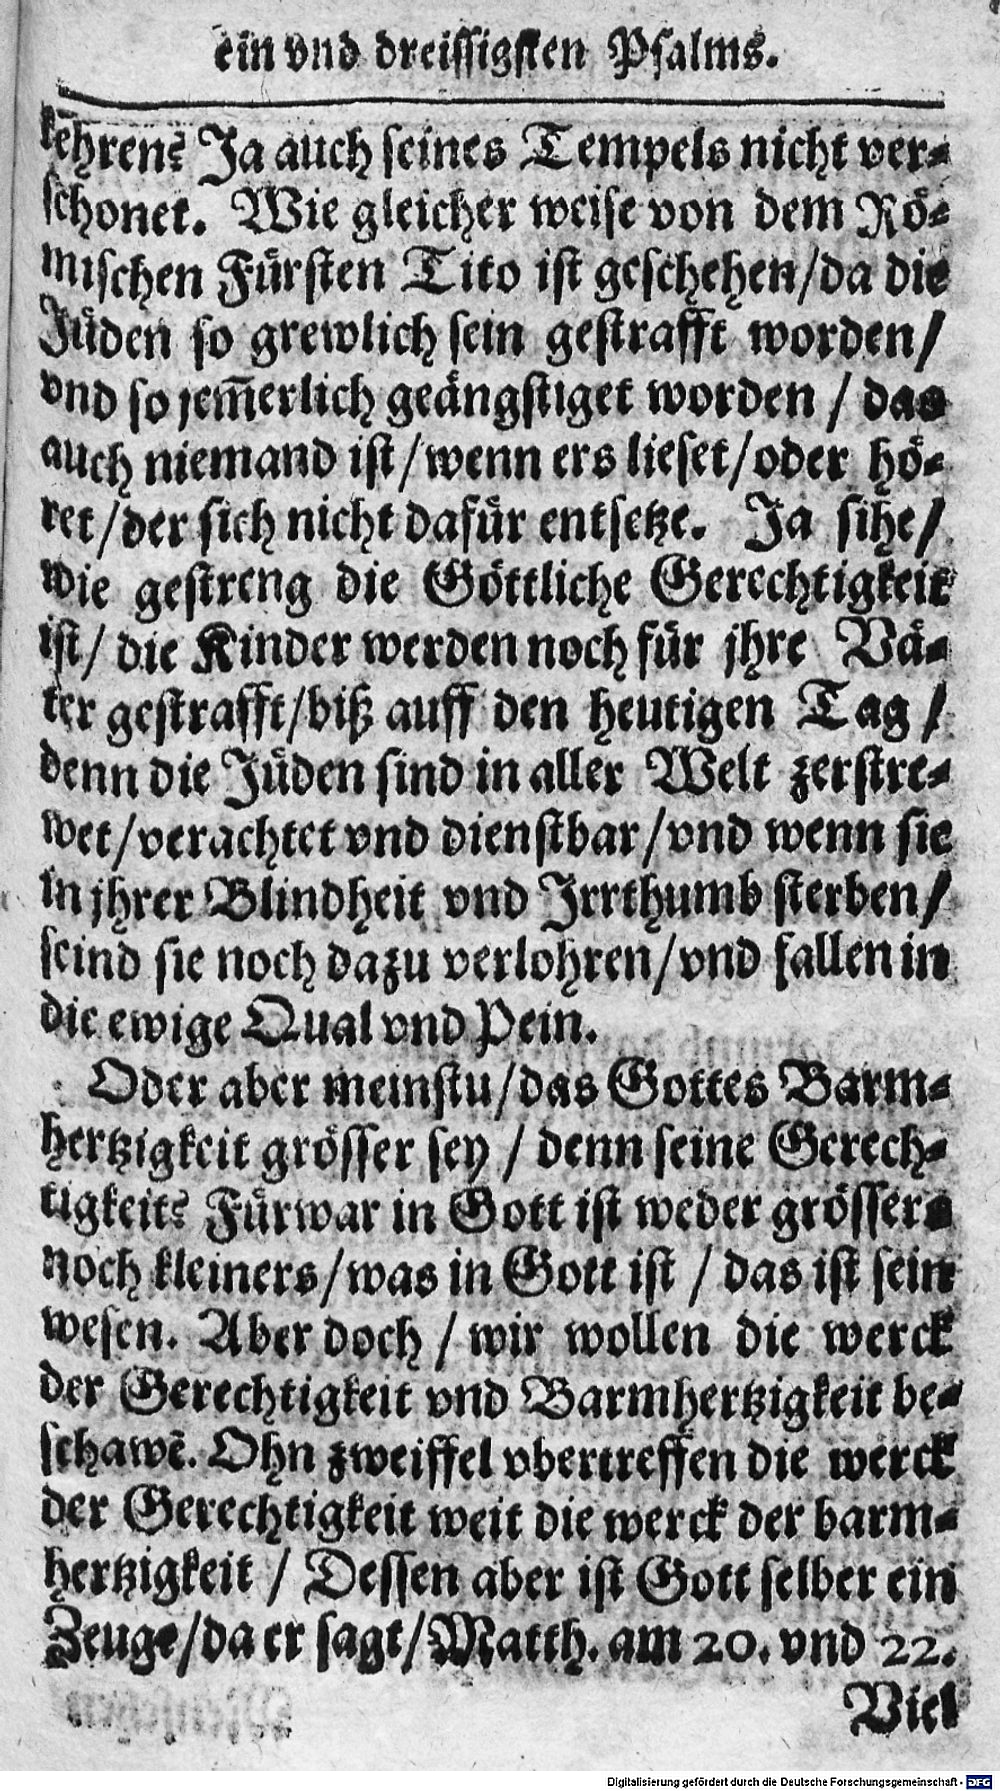 ein vnd dreissigsten Psalms.
kehren? Ja auch seines Tempels nicht ver-
schonet. Wie gleicher weise von dem Rö-
mischen Fürsten Tito ist geschehen/da die
Jüden so grewlich sein gestrafft worden/
vnd so jem̃erlich geängstiget worden / das
auch niemand ist/wenn ers lieset/oder hö-
ret/der sich nicht dafür entsetze. Ja sihe/
wie gestreng die Göttliche Gerechtigkeit
ist/ die Kinder werden noch für jhre Vä-
ter gestrafft/biß auff den heutigen Tag/
denn die Jüden sind in aller Welt zerstre-
wet/verachtet vnd dienstbar/vnd wenn sie
in jhrer Blindheit vnd Irrthumb sterben/
seind sie noch dazu verlohren/vnd fallen in
die ewige Qual vnd Pein.
Oder aber meinstu/das Gottes Barm-
hertzigkeit grösser sey / denn seine Gerech-
tigkeit? Fürwar in Gott ist weder grössers
noch kleiners/was in Gott ist / das ist sein
wesen. Aber doch / wir wollen die werck
der Gerechtigkeit vnd Barmhertzigkeit be-
schawẽ. Ohn zweiffel vbertreffen die werck
der Gerechtigkeit weit die werck der barm-
hertzigkeit / Dessen aber ist Gott selber ein
Zeuge/da er sagt/Matth. am 20. vnd 22.
Viel
Digitalisierung gefördert durch die Deutsche Forschungsgemeinschaft - DFG